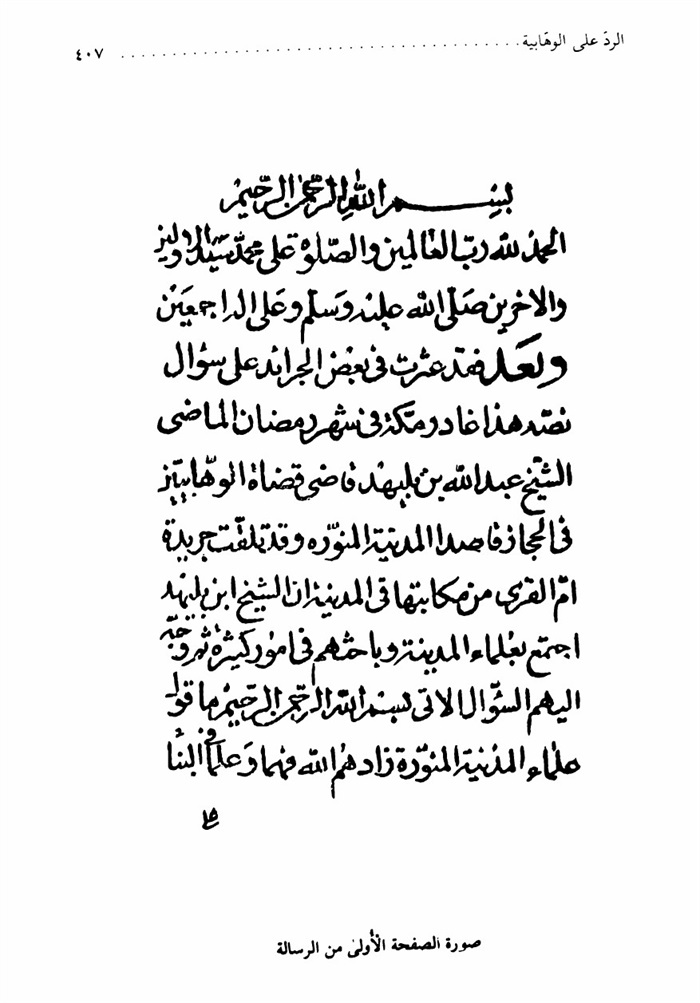 الردّ على الوهّابية . . . . . . . . . . . . . . . . . . . . . . . . . . . . . . . . . . . . . . . . ٤٠٧
بسم الله الرّحمن الرّحيم
الحمد لله ربّ العالمين والصّلوة على محمّد سيّد الاولين
والاخرين صَلّى الله عليه وَسلّم وعَلى اله اجمعين
وبعَد فقد عثرت فى بعض الجرائد على سؤال
نصّه هذا غادر مكّة فى شهر رمضان الماضى
الشّيخ عبد الله بن بليهد قاضى قضاة الوهّابيّين
فى الحجاز قاصدا المدينة المنوّره وقد تلقّت جريدة
امّ القرى من مكاتبها فى المدينة ان الشيخ ابن بليهد
اجتمع بعُلماء المدينة وباحثهم فى امور كثيرة ثم وجّه
اليهم السّؤال الاتى بسم الله الرّحمن الرّحيم ما قول
علماء المدينة المنوّرة زادهم الله فهما وَعلما فى البناء
صورة الصفحة الأُولى من الرسالة